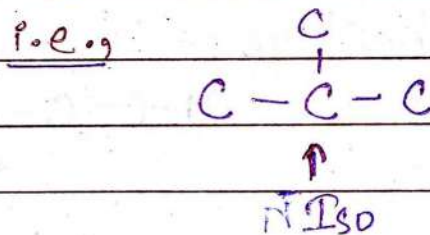 i.e.,
C
C - C - C
↑
Iso